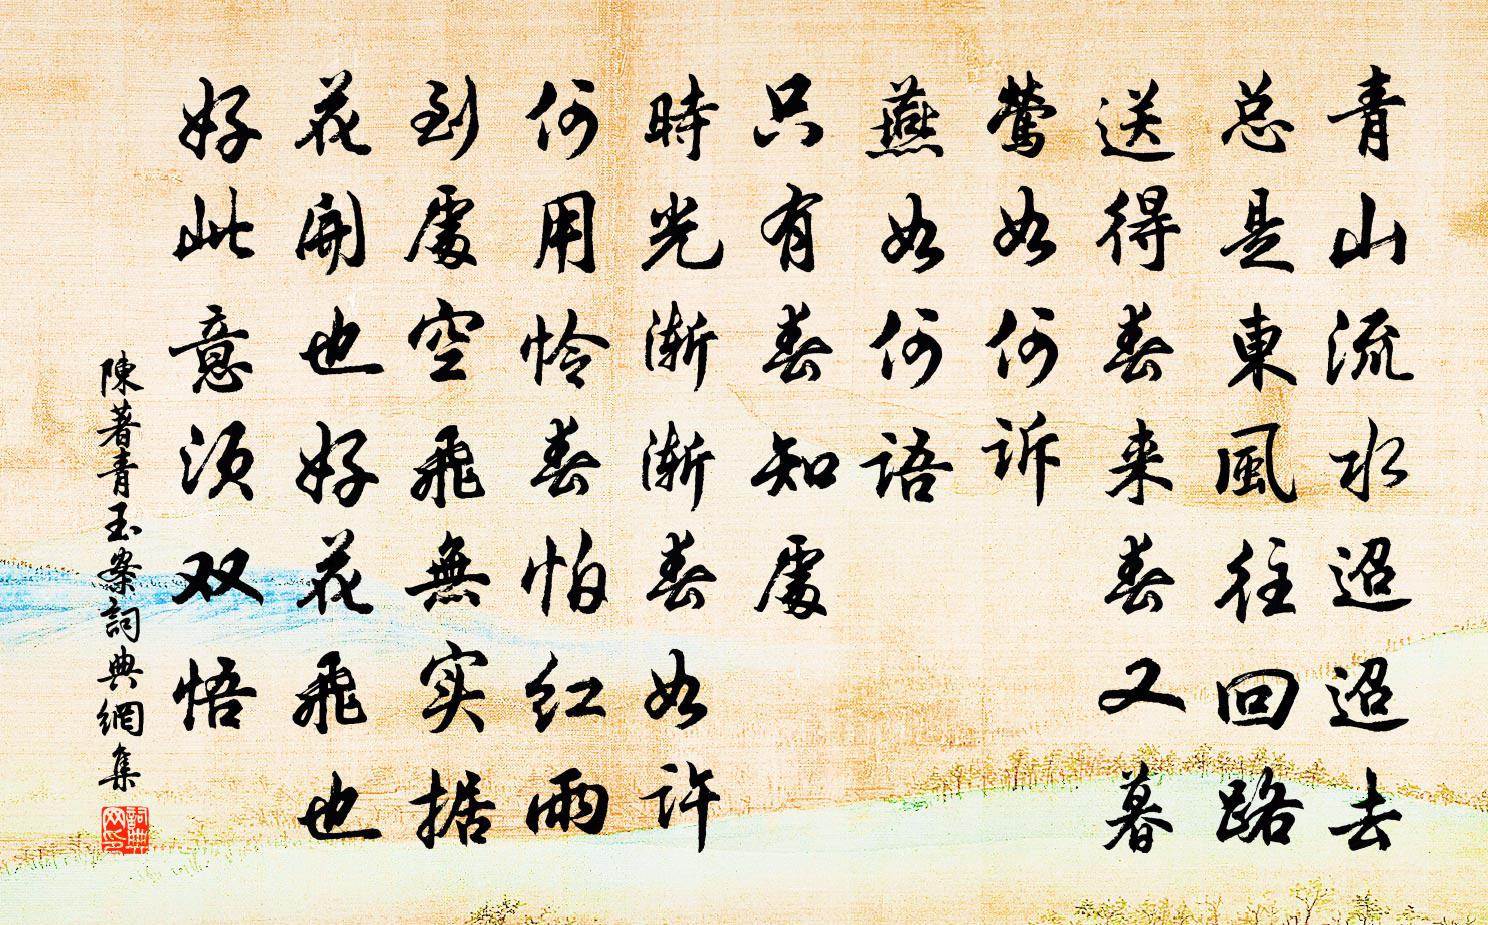 青山流水迢迢去
总是東風往回路
送得春来春又暮
莺如何诉
燕如何语
只有春知處
時光渐渐春如许
何用怜春怕红雨
到處空飛無实据
花開也好花飛也
好此意须双悟
陳著青玉案詞典網集
詞典网印